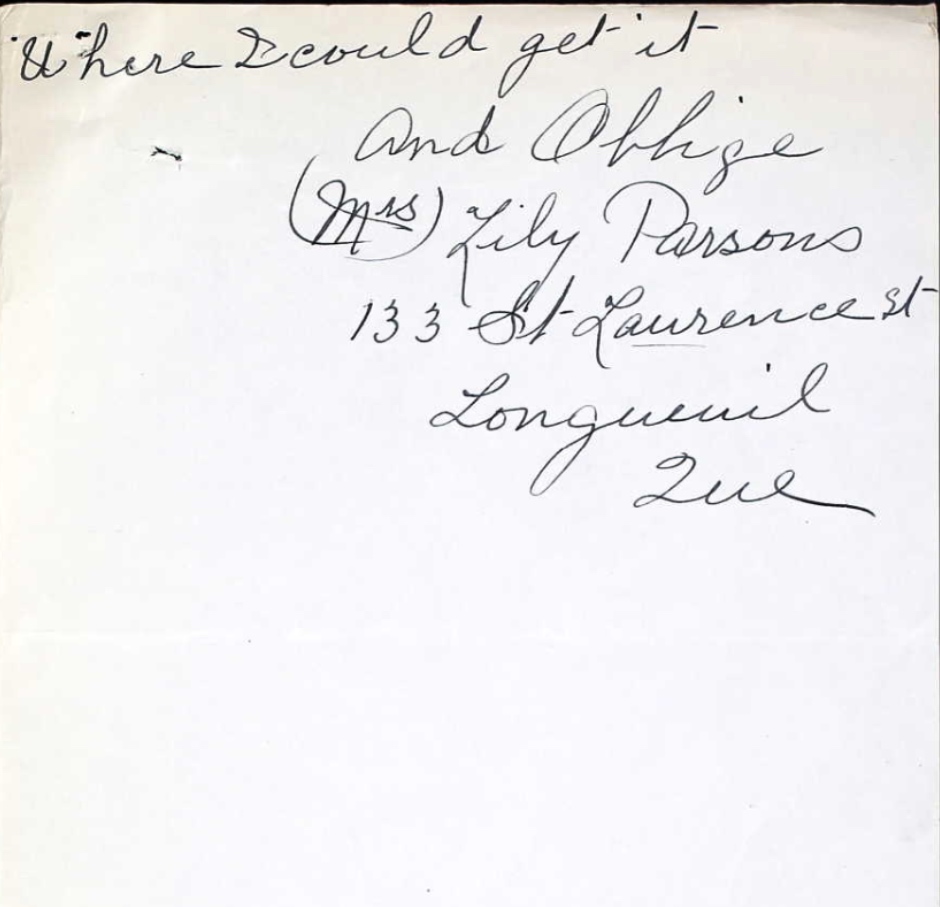 Where I could get it
and Oblige
(Mrs) Lily Parsons
133 St Laurence St
Longueuil
Que